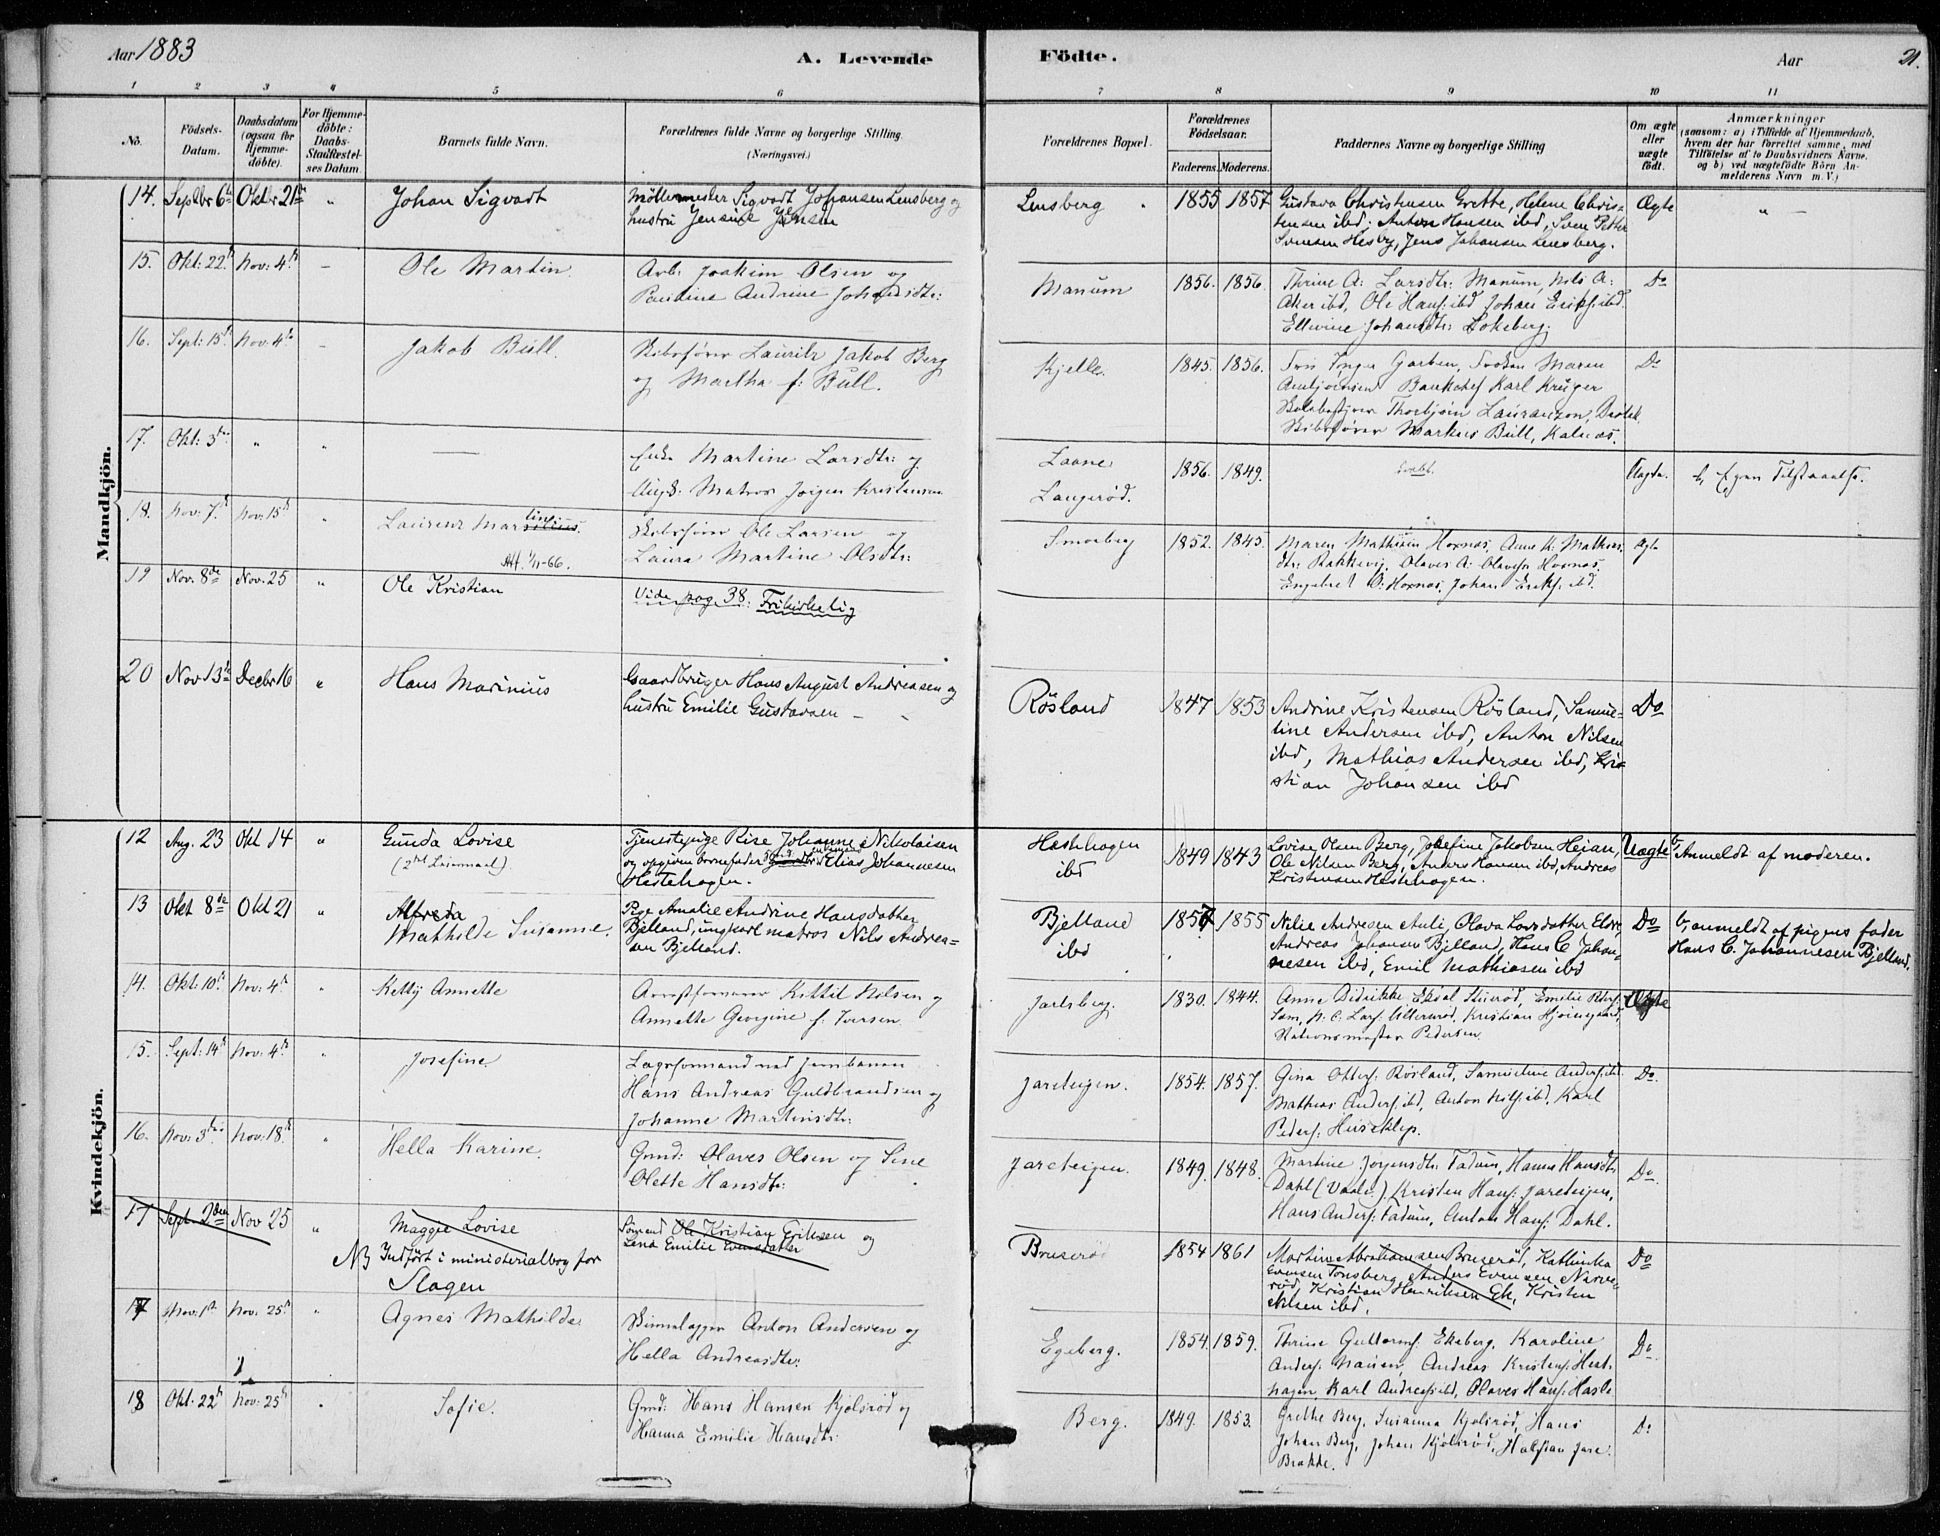 Aar 1883
A. Levende
Födte.
Aar
21.
1 2 3 4 5 6 7 8 9 10 11
No.
Födsels-
Datum.
Daabsdatum
(ogsaa for
Hjemme-
döbte).
For Hjemme-
döbte:
Daabs-
Stadfæstel-
ses Datum.
Barnets fulde Navn.
Forældrenes fulde Navne og borgerlige Stilling.
(Næringsvei.)
Forældrenes Bopæl.
Forældrenes
Födselsaar.
Faderens. Moderens.
Faddernes Navne og borgerlige Stilling
Om ægte
eller
uægte
födt.
Anmærkninger
(saasom: a) i Tilfælde af Hjemmedaab,
hvem der har forrettet samme, med
Tilföielse af to Daabsvidners Navne,
og b) ved uægtefödte Börn An-
melderens Navn m. V.)
Mandkjön.
14. Septbr 6te Oktbr 21de " Johan Sigvart
Möllemester Sigvart Johansen Lensberg og
hustru Jensine Jensen
Lensberg 1855 1857
Gustava Christensen Grette, Helene Chris-
tensen ibd, Anton Hansen ibd, Sven Petter
Svensen Hesby, Jens Johansen Lensberg.
Ægte " –
15. Okt: 22de Nov: 4de – Ole Martin.
Arb: Joakim Olsen og
Pauline Andrine Johansdtr:
Manum 1856. 1856.
Thrine A: Larsdtr: Manum, Nils A:
Aker ibd, Ole Hans: ibd Johan Eriks: ibd.
Ellevine Johansdtr: Lokeberg.
Do
16. Sept: 15de Nov: 4de – Jakob Bull.
Skibsförer Lauritz Jakob Berg
og Martha f: Bull.
Kjelle. 1845. 1856.
Fru Inga Garben, Fröken Maren
Bankchef Karl Krüger
Thorbjörn Lauranzon,
Skibsförer Markus Bull, Kalnæs.
Do
17. Okt: 3die " " —
Enke Martine Larsdtr: og
Ungk: Matros Jörgen Kristensen
Laane
Langeröd.
1856. 1849.
Uægte. b, Egen Tilstaaelse.
18. Nov: 7de Nov: 15de " Laurenz Marsilius.
tin
1/11-66.
Skibsförer Ole Larsen og
Laura Martine Olsdtr:
Smørberg 1852. 1845.
Maren Mathisen Hoxnæs, Anne K. Mathis-
dtr: Rakkevig, Olaves A: Olavesen Hoxnæs
Engebret O: Hoxnæs, Johan Eriks: ibd.
Ægte
19 Nov. 8de Nov. 25 " Ole Kristian
Vide pag 38: Frikirkelig
20 Nov 13de Decbr 16 " Hans Marinius
Gaardbruger Hans August Andreasen og
hustru Emilie Gustavsen –
Rösland 1847 1853
Andrine Kristensen Rösland, Samue-
line Andersen ibd, Anton Nilsen
ibd, Mathias Andersen ibd, Kris-
stian Johansen ibd
Do
Kvindekjön.
12 Aug. 23 Okt 14 " Gunda Lovise
(2det Leiermaal).
Tjenestepige Rise Johanne Nikolaisen
og opgiven barnefader Elias Johannesen
Hestehagen.
Hestehagen
ibd
1849 1843
Lovise Olsen Berg, Josefine Jakobsen Heian,
Ole Nilsen Berg, Anders Hansen ibd, Andreas
Kristensen Hestehagen.
Uægte b, Anmeldt af moderen.
13 Okt 8de Okt 21 " Alfreda
Mathilde Susanne.
Pige Amalie Andrine Hansdatter
Bjelland, ungkarl matros Nils Andrea-
sen Bjelland.
Bjelland
ibd
1857 1855
Nilie Andresen Auli, Olava Larsdatter
Andreas Johansen Bjelland, Hans C. Johan-
nesen ibd, Emil Mathiasen ibd
Do b, anmeldt af pigens fader
Hans C. Johannesen Bjelland.
14. Okt: 10de Nov: 4de " Ketty Annette
Arrestforvarer Kittil Nilsen og
Annette Georgine f: Iversen.
Jarlsberg. 1830. 1844.
Anne Didrikke Ekdal Emilie Peders:
Sem, Kristian
Stationsmester Pedersen.
Ægte
15. Sept: 14de Nov: 4de " Josefine.
Lagsformand ved Jernbanen
Hans Andreas Guldbrandsen og
Johanne Martinsdtr:
Jareteigen. 1854. 1857.
Gina Otters: Rösland, Samueline Anders: ibd
Mathias Anders: ibd, Anton Nils: ibd, Karl
Peders: Huseklep.
Do.
16. Nov: 3die Nov: 18de " Hella Karine.
Grmd: Olaves Olsen og Sine
Olette Hansdtr:
Jareteigen. 1849. 1848.
Martine Jorgensdtr: Fadum, Hanna Hansdtr
Dahl (Vaale) Kristen Hans: Jareteigen,
Hans Anders: Fadum, Anton Hans: Dahl.
Do.
17 Sept. 2den Nov 25 " Maggie Lovise
Sömand Ole Kristian Eriksen og
Lena Emilie Evensdatter
NB Indfört i ministerialbog for
Slagen
Bruseröd 1854 1861
Martine Abrahamsen Bruseröd, Kathinka
Evensen Tönsberg, Anders Evensen Narve-
röd, Kristian Henriksen Ek, Kristen
Nilsen ibd.
Do
17 Nov: 1ste Nov: 25de " Agnes Mathilde
Anton Andersen og
Hella Andreasdtr:
Egeberg. 1854. 1859.
Thrine Guttorms: Ekeberg, Karoline
Anders: Nauen, Andreas Kristens: Hest-
hagen, Karl Andreas: ibd, Olaves Hans: Hasle.
Do.
18 Okt. 22de Nov: 25de " Sofie.
Grmd: Hans Hansen Kjölsröd og
Hanna Emilie Hansdtr:
Berg. 1849. 1853.
Grethe Berg, Susanna Kjölsröd, Hans
Johan Berg, Johan Kjölsröd, Halfdan Jare
Brække.
Do